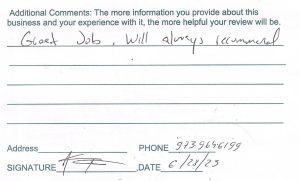 Additional Comments: The more information you provide about this
business and your experience with it, the more helpful your review will be.
Great Job, Will always recommend
Address
PHONE 9739646199
SIGNATURE DATE 6/28/23